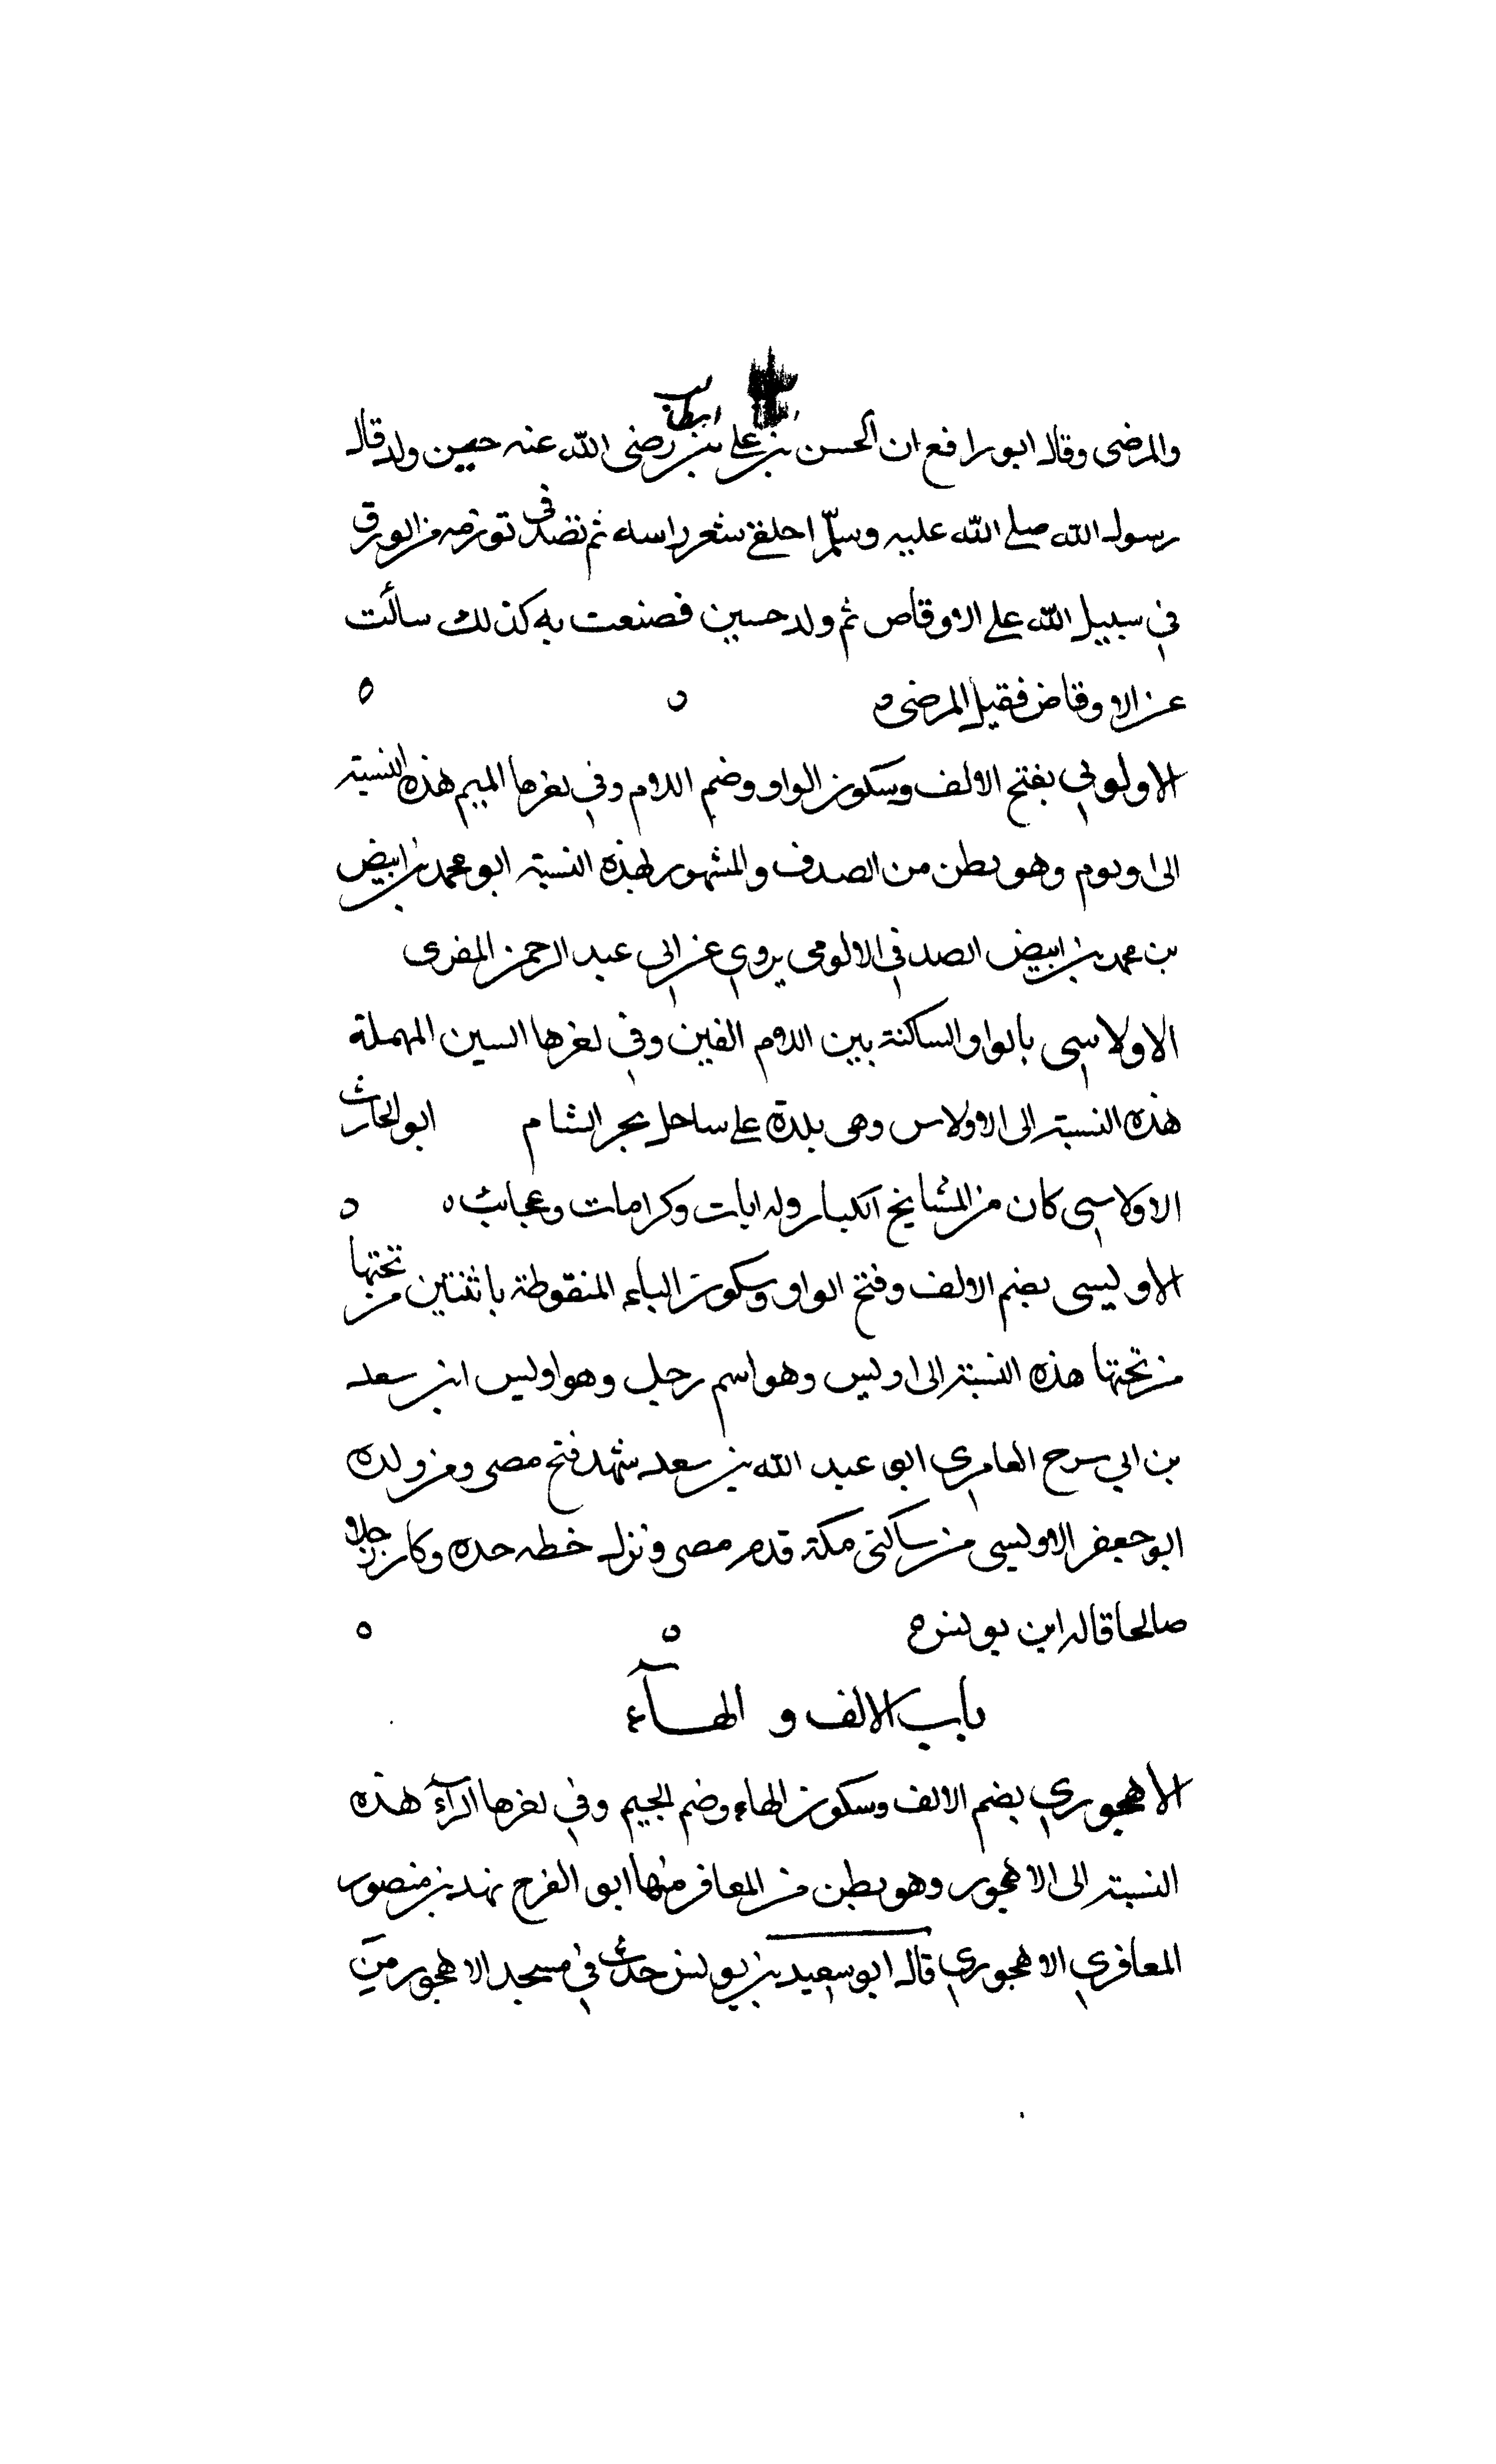 والمرضى وقال ابو رافع ان الحسن بن على بن ابيطالب رضى الله عنه حين ولد قال
رسول الله صلى الله عليه وسلّم احلقى شعر راسه ثم تصدقى توزنه من الورق
في سبيل الله على الاوقاص ثم ولد حسين فصنعت به كذلك سألت
عن الاوقاص فقيل المرضى ه
الاولوبي بفتح الالف وسكون الواو وضم اللام وفي اخرها الميم هذه النسبة
الى اويوم وهو بطن من الصدف والمشهور بهذه النسبة ابو محمد بن ابيض
بن محمد بن ابيض الصدفي الالومى يروي عن ابي عبد الرحمن المقرى
الاولاسي بالواو الساكنة بين اللام الفين وفي اخرها السين المهملة
هذه النسبة الى الاولاس وهى بلدة على ساحل بحر الشام ابو الحارث
الاولاسي كان من المشايخ الكبار وله ايات وكرامات وعجائب ه
الاويسى بضم الالف وفتح الواو وسكون الياء المنقوطة باثنتين من تحتها
من تحتها هذه النسبة الى اويس وهو اسم رجل وهو اويس ابن سعد
بن ابي سرح العامري ابو عبد الله بن سعد شهد فتح مصر ومن ولده
ابو جعفر الاويسى من ساكنى مكة قدم مصر ونزل خطه حده وكان رجلا
صالحا قاله ابن يونس ه
باب الالف و الهآء
الاهجوري بضم الالف وسكون الهاء وضم الجيم وفي اخرها الرآء هذه
النسبة الى الاهجور وهو بطن من المعافر منها ابو الفرج نهد بن منصور
المعافري الاهجوري قال ابو سعيد بن يونس حدث في مسجد الاهجور من